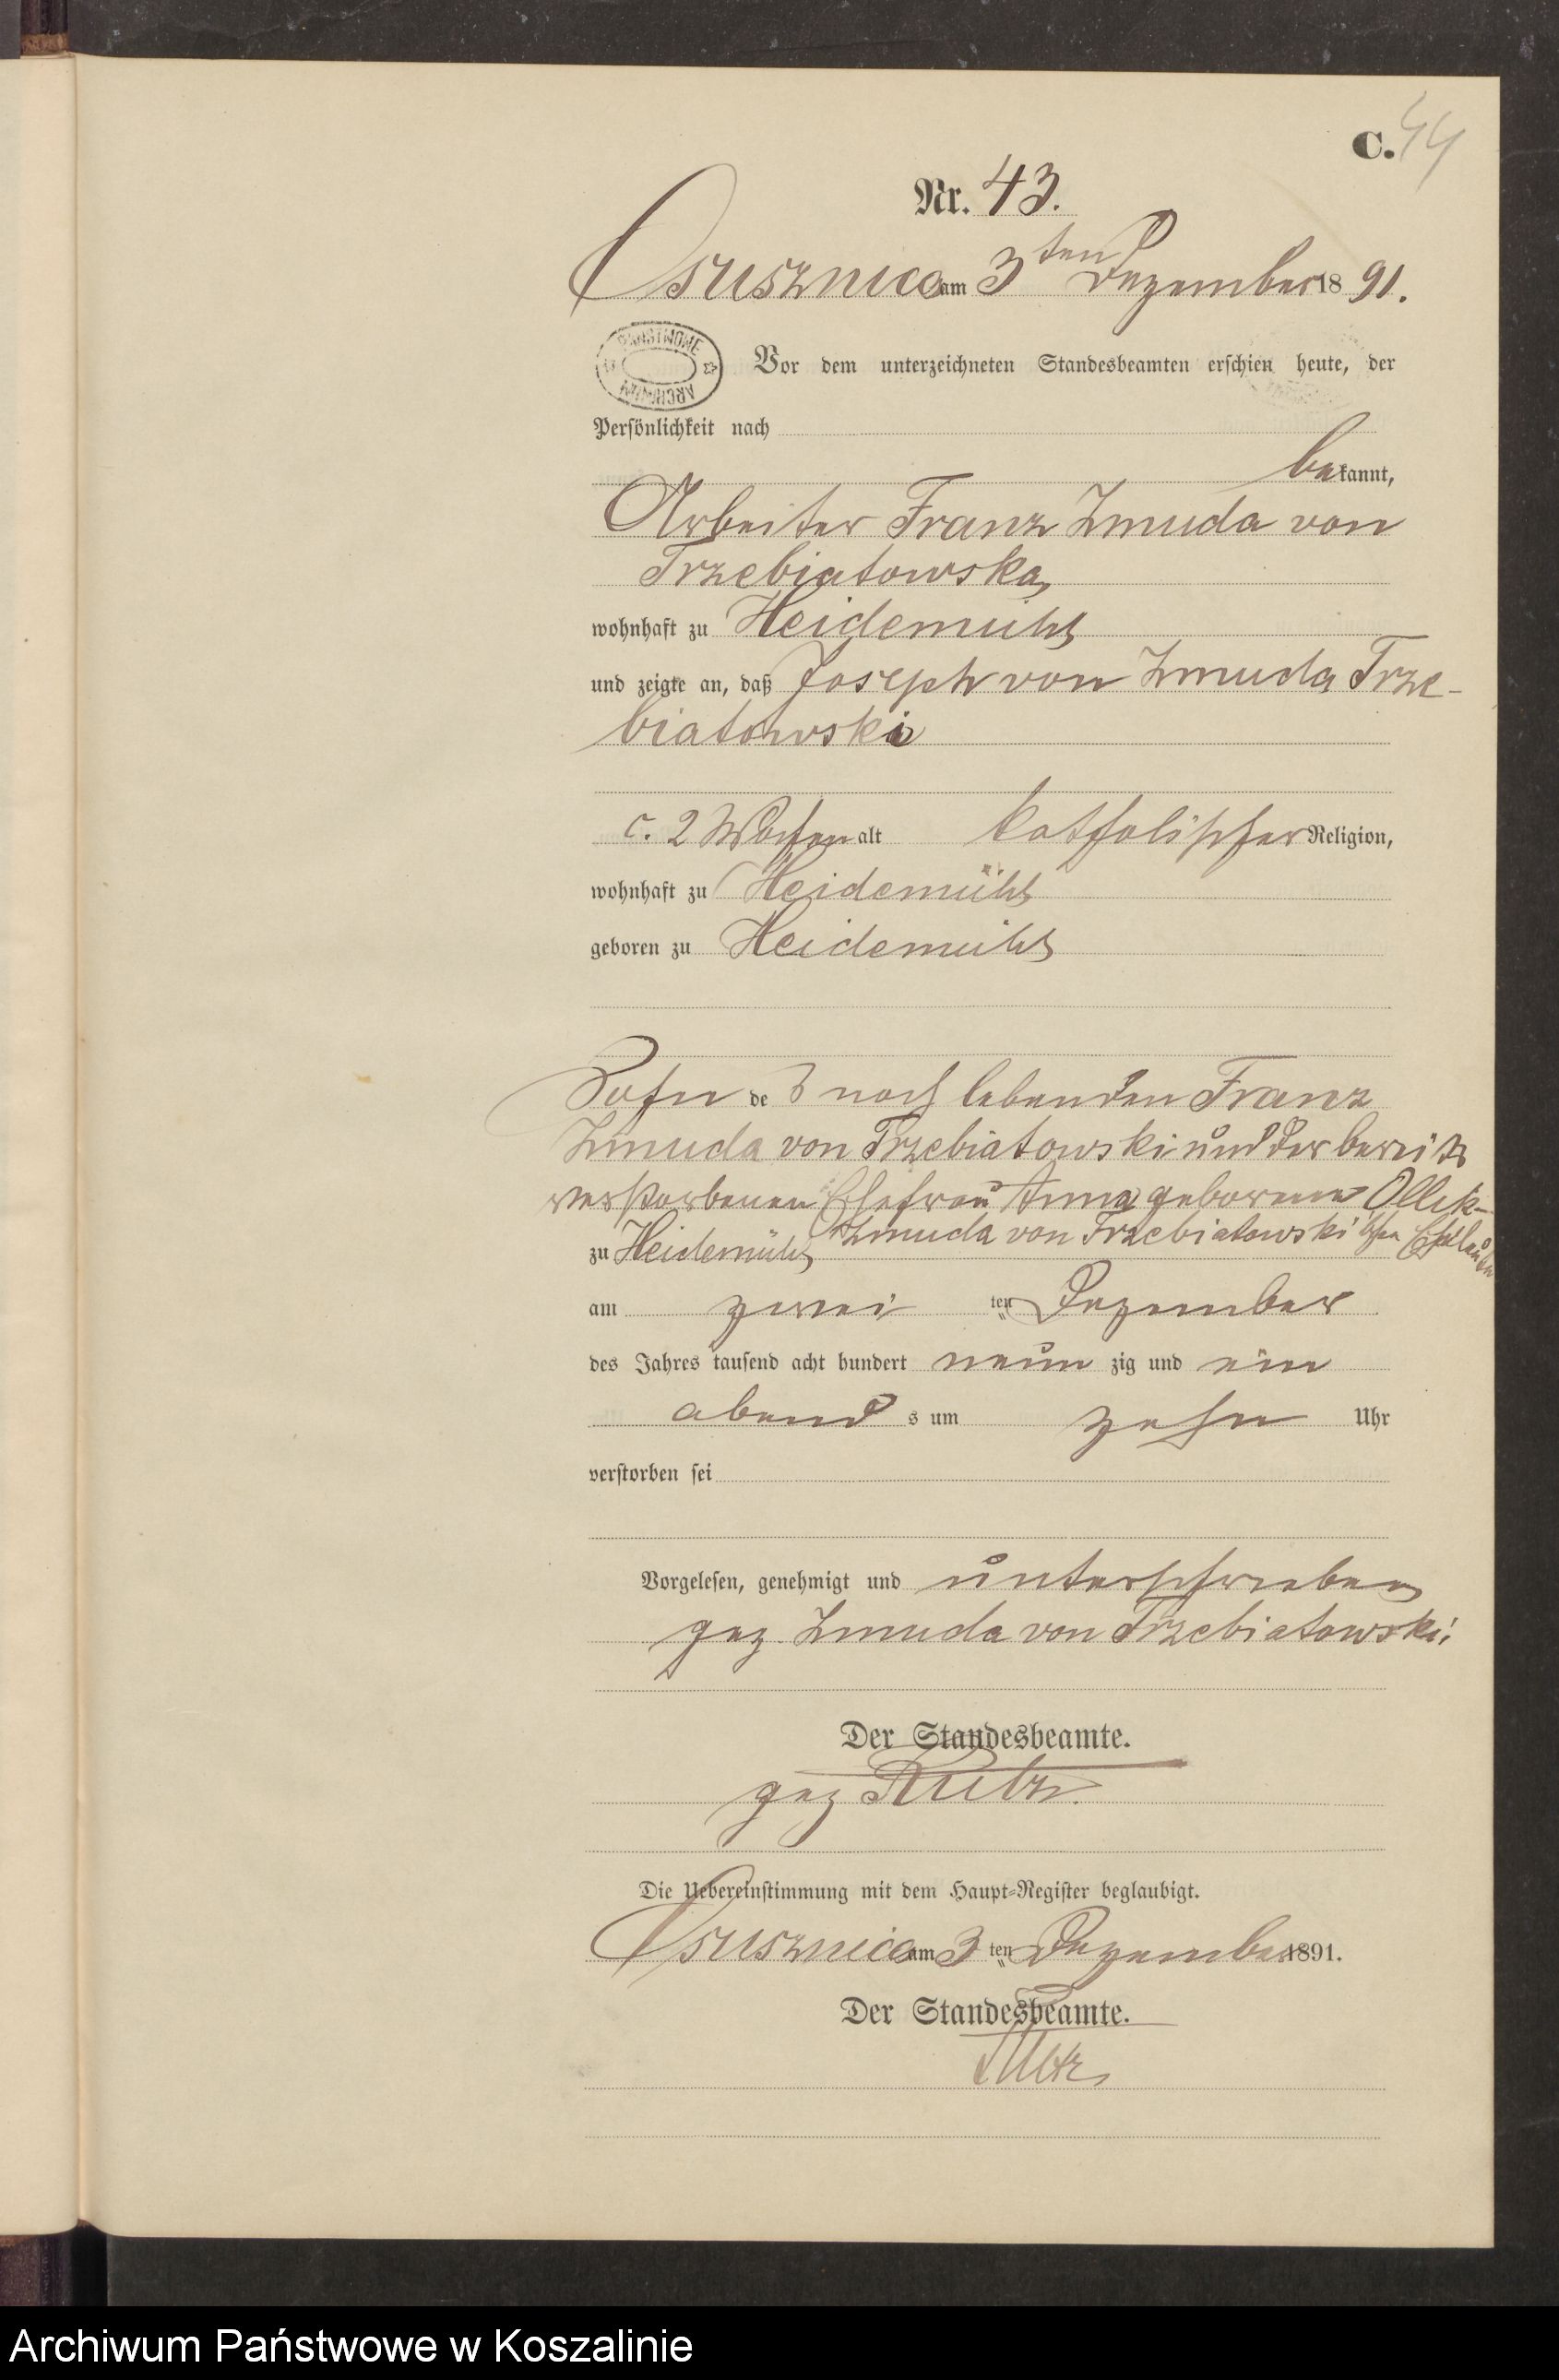 C. 44
Nr. 43.
Osusznica am 3ten Dezember 1891.
PAŃSTWOWE
ARCHIWUM
Vor dem unterzeichneten Standesbeamten erschien heute, der
Persönlichkeit nach
bekannt,
Arbeiter Franz Zmuda von
Trzebiatowska,
wohnhaft zu Heidemühl
und zeigte an, daß Joseph von Zmuda Trze-
biatowski
c. 2 Wochen alt katholischer Religion,
wohnhaft zu Heidemühl
geboren zu Heidemühl
Sohn des noch lebenden Franz
Zmuda von Trzebiatowski und der bereits
verstorbenen Ehefrau Anna geborene Ollik-
Zmuda von Trzebiatowski
zu Heidemühl
am zwei ten Dezember
des Jahres tausend acht hundert neunzig und ein
abends um zehn Uhr
verstorben sei
Vorgelesen, genehmigt und unterschrieben
gez. Zmuda von Trzebiatowski
Der Standesbeamte.
gez
Die Uebereinstimmung mit dem Haupt-Register beglaubigt.
Osusznica am 3ten Dezember 1891.
Der Standesbeamte.
Archiwum Państwowe w Koszalinie